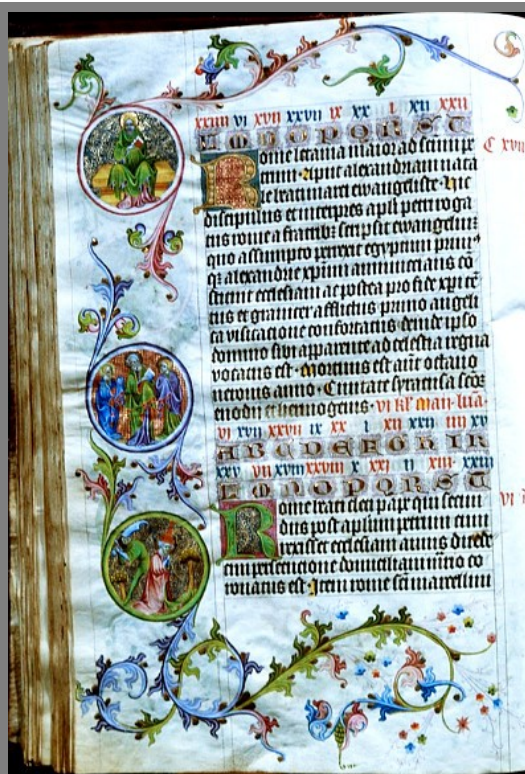 xxiiii vi xvii xxvii ix xx i xii xxii
L M N O P Q R S T
Rome letania maior ad sc̄m pe
trum. Apud alexandriam nata
le beati marci ewangeliste. hic
discipulus et interpres apli petri roga
tus rome a fratribꝫ scripsit ewangeliū
quo assumpto perrexit egyptum primꝰ
qꝫ alexandrie xp̄um annuncians cō
stituit ecclesiam ac postea pro fide xpi tē
tus et graviter afflictus primo angeli
ca visitacione confortatus deinde ipso
domino sibi apparente ad celestia regna
vocatus est. Mortuus est aūt octavo
neronis anno. Civitate syracusa sc̄oꝝ
enodii et hermogenis. vi kł maii. luā
vi xvii xxvii ix xx i xii xxii iiii xv
A B C D E F G H I K
xxv vii xviii xxviii x xxi ii xiii xxiii
L M N O P Q R S T
Rome beati cleti pape qui secun
dus post aplum petrum cum
rexisset ecclesiam annis duode
cim persecucione domiciani m̄rio co
ronatus est. Item rome sc̄i marcellini
C xvii
vi